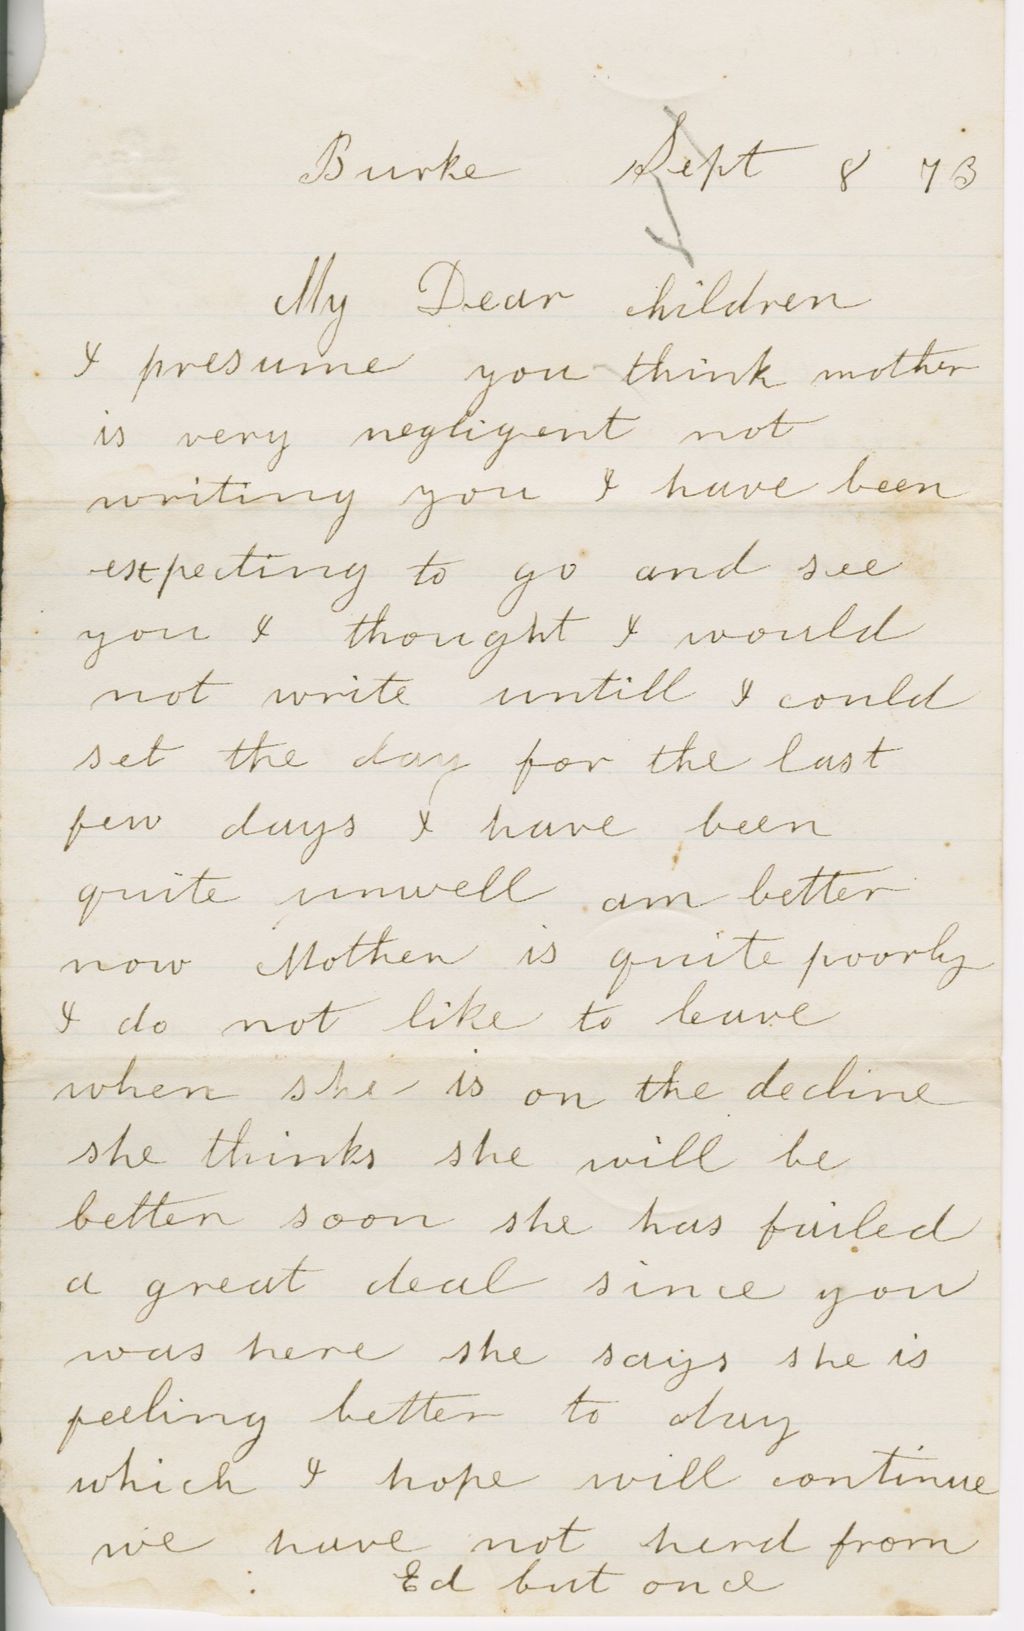 Burke Sept 8 73
My Dear children
I presume you think mother
is very negligent not
writing you I have been
expecting to go and see
you I thought I would
not write untill I could
set the day for the last
few days I have been
quite unwell am better
now Mother is quite poorly
I do not like to leave
when she is on the decline
she thinks she will be
better soon she has failed
a great deal since you
was here she says she is
feeling better to day
which I hope will continue
we have not herd from
Ed but once